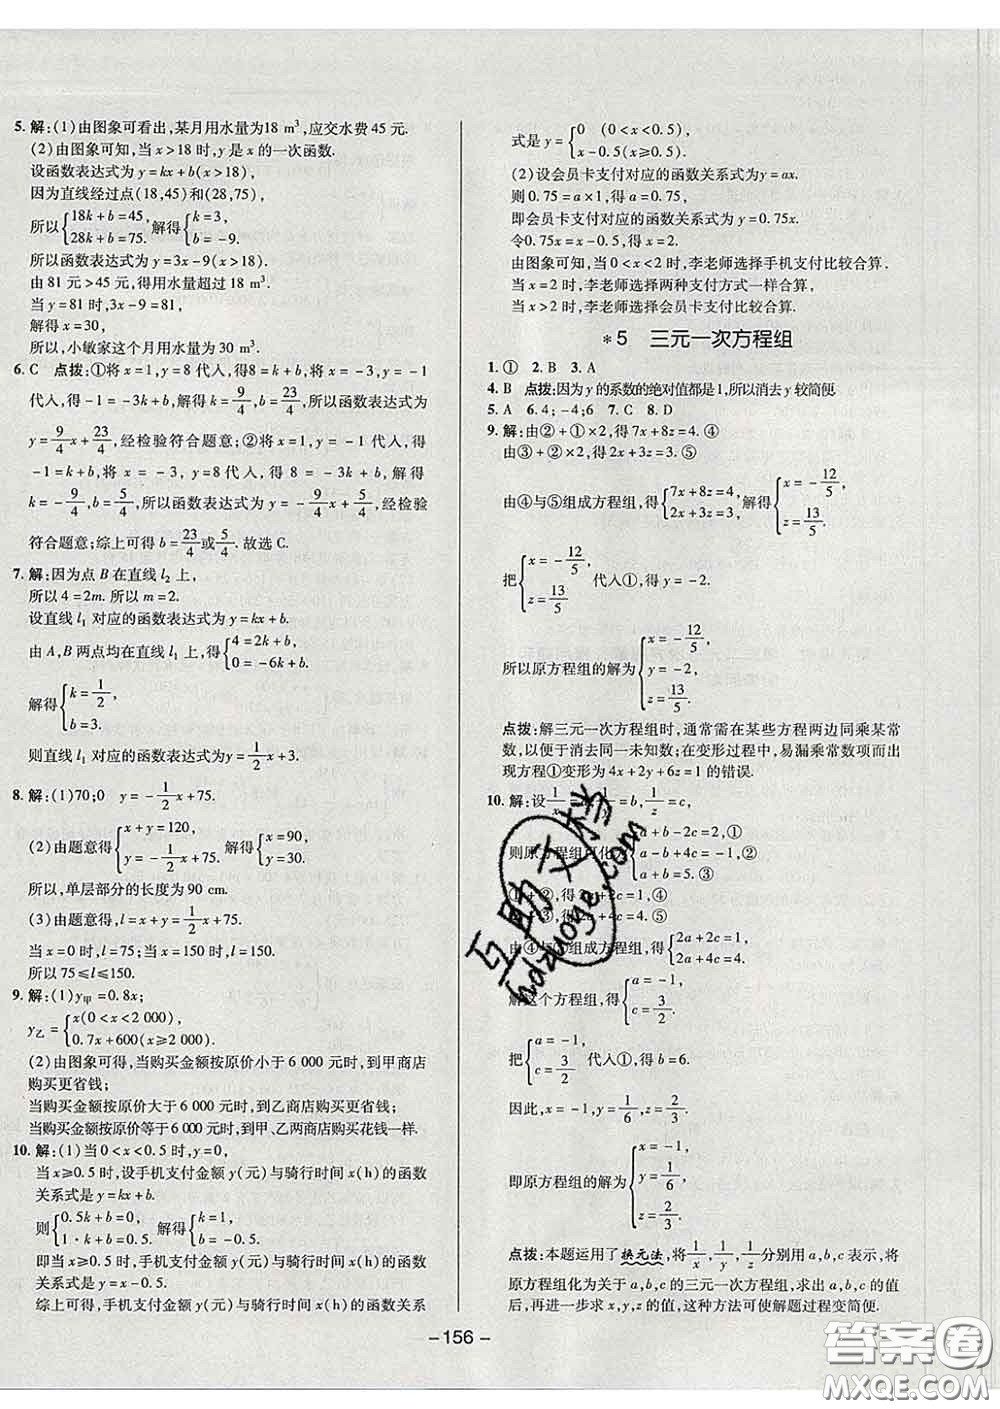 5. 解:(1)由图象可看出,某月用水量为18 m³,应交水费45元.
(2)由图象可知,当x>18时,y是x的一次函数.
设函数表达式为y=kx+b(x>18),
因为直线经过点(18,45)和(28,75),
所以{18k+b=45, 28k+b=75. 解得{k=3, b=-9.
所以函数表达式为y=3x-9(x>18).
由81元>45元,得用水量超过18 m³.
当y=81时,3x-9=81,
解得x=30,
所以,小敏家这个月用水量为30 m³.
6. C 点拨:①将x=1,y=8代入,得8=k+b,将x=-3,y=-1
代入,得-1=-3k+b,解得k=9/4,b=23/4,所以函数表达式为
y=9/4x+23/4,经检验符合题意;②将x=1,y=-1代入,得
-1=k+b,将x=-3,y=8代入,得8=-3k+b,解得
k=-9/4,b=5/4,所以函数表达式为y=-9/4x+5/4,经检验
符合题意;综上可得b=23/4或5/4.故选C.
7. 解:因为点B在直线l₂上,
所以4=2m.所以m=2.
设直线l₁对应的函数表达式为y=kx+b.
由A,B两点均在直线l₁上,得{4=2k+b, 0=-6k+b.
解得{k=1/2, b=3.
则直线l₁对应的函数表达式为y=1/2x+3.
8. 解:(1)70;0 y=-1/2x+75.
(2)由题意得{x+y=120, y=-1/2x+75. 解得{x=90, y=30.
所以,单层部分的长度为90 cm.
(3)由题意得,l=x+y=1/2x+75.
当x=0时,l=75;当x=150时,l=150.
所以75≤l≤150.
9. 解:(1)y甲=0.8x;
y乙={x(0<x<2 000), 0.7x+600(x≥2 000).
(2)由图象可得,当购买金额按原价小于6 000元时,到甲商店
购买更省钱;
当购买金额按原价大于6 000元时,到乙商店购买更省钱;
当购买金额按原价等于6 000元时,到甲、乙两商店购买花钱一样.
10. 解:(1)当0<x<0.5时,y=0,
当x≥0.5时,设手机支付金额y(元)与骑行时间x(h)的函数
关系式是y=kx+b.
则{0.5k+b=0, 1·k+b=0.5. 解得{k=1, b=-0.5.
即当x≥0.5时,手机支付金额y(元)与骑行时间x(h)的函数
关系式是y=x-0.5.
综上可得,手机支付金额y(元)与骑行时间x(h)的函数关系
式是y={0 (0<x<0.5), x-0.5(x≥0.5).
(2)设会员卡支付对应的函数关系式为y=ax.
则0.75=a×1,得a=0.75.
即会员卡支付对应的函数关系式为y=0.75x.
令0.75x=x-0.5,得x=2.
由图象可知,当0<x<2时,李老师选择手机支付比较合算.
当x=2时,李老师选择两种支付方式一样合算.
当x>2时,李老师选择会员卡支付比较合算.
*5 三元一次方程组
1. ① 2. B 3. A
4. B 点拨:因为y的系数的绝对值都是1,所以消去y较简便.
5. A 6. 4;-4;6 7. C 8. D
9. 解:由②+①×2,得7x+8z=4. ④
由③+②×2,得2x+3z=3. ⑤
由④与⑤组成方程组,得{7x+8z=4, 2x+3z=3, 解得{x=-12/5, z=13/5.
把{x=-12/5, z=13/5 代入①,得y=-2.
所以原方程组的解为{x=-12/5, y=-2, z=13/5.
点拨:解三元一次方程组时,通常需在某些方程两边同乘某常
数,以便于消去同一未知数;在变形过程中,易漏乘常数项而出
现方程①变形为4x+2y+6z=1的错误.
10. 解:设1/x=a,1/y=b,1/z=c,
则原方程组可化为{a+b-2c=2,① a-b+4c=1,② a+b=5.③
①+②,得2a+2c=1.④
②+③,得2a+4c=4.⑤
由④与⑤组成方程组,得{2a+2c=1, 2a+4c=4.
解这个方程组,得{a=-1, c=3/2.
把{a=-1, c=3/2 代入①,得b=6.
因此,x=-1,y=1/6,z=2/3.
即原方程组的解为{x=-1, y=1/6, z=2/3.
点拨:本题运用了换元法,将1/x,1/y,1/z分别用a,b,c表示,将
原方程组化为关于a,b,c的三元一次方程组,求出a,b,c的值
后,再进一步求x,y,z的值,这种方法可使解题过程变简便.
互助文档
hdzuoye.com
-156-
答案圈
MXQE.COM